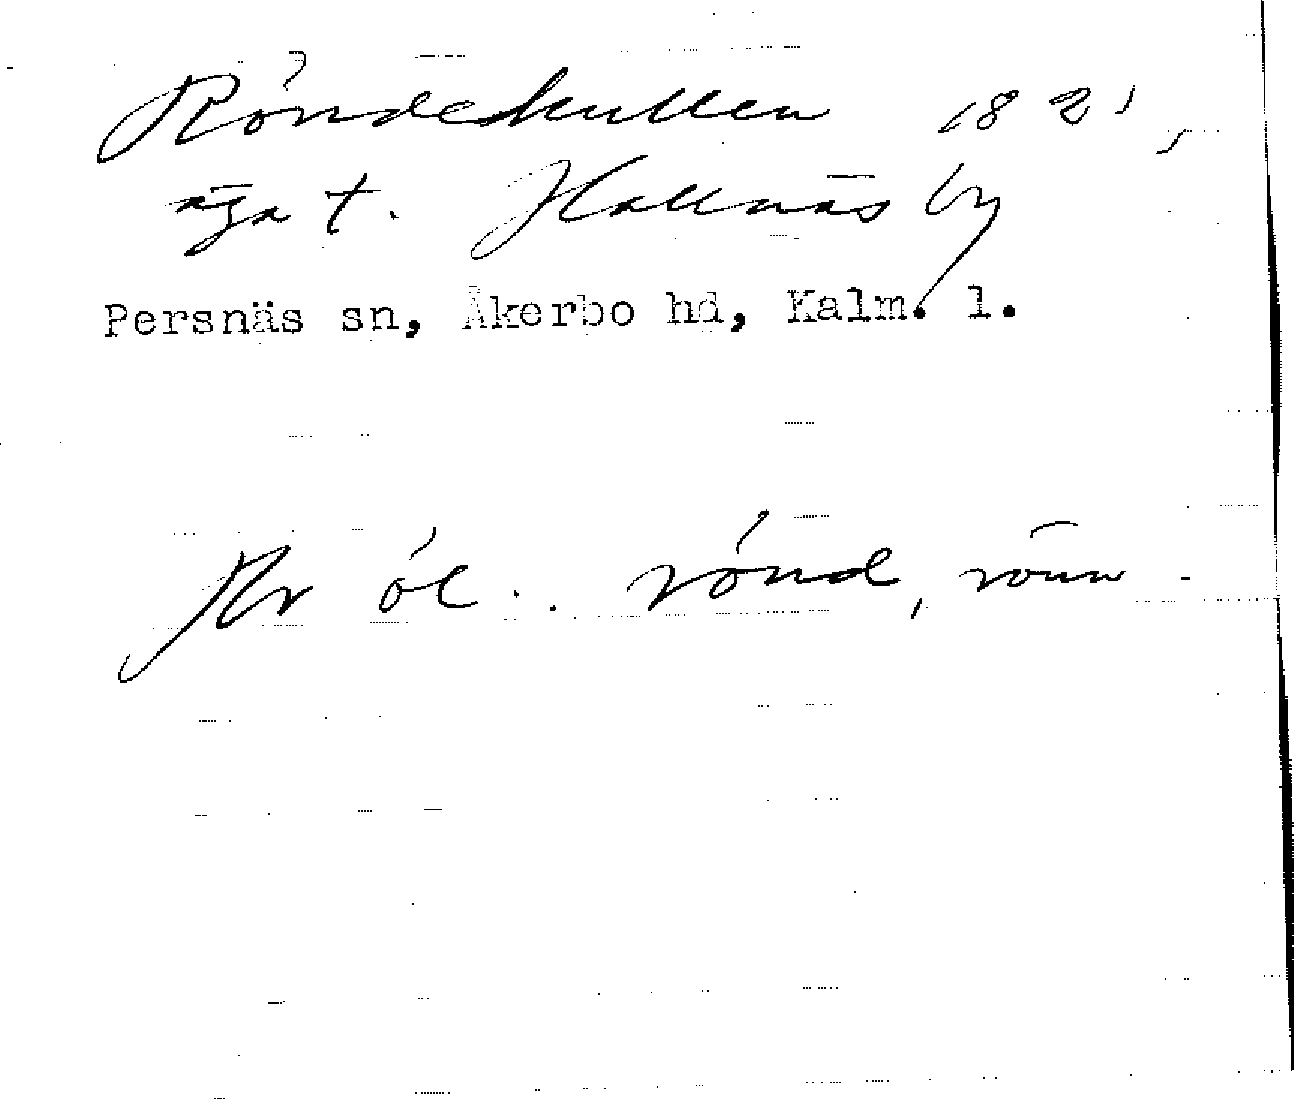 Röndekullen 1821,
äga t. Hallnäs by
Persnäs sn, Åkerbo hd, Kalm. l.
öl. . rönd, rönn